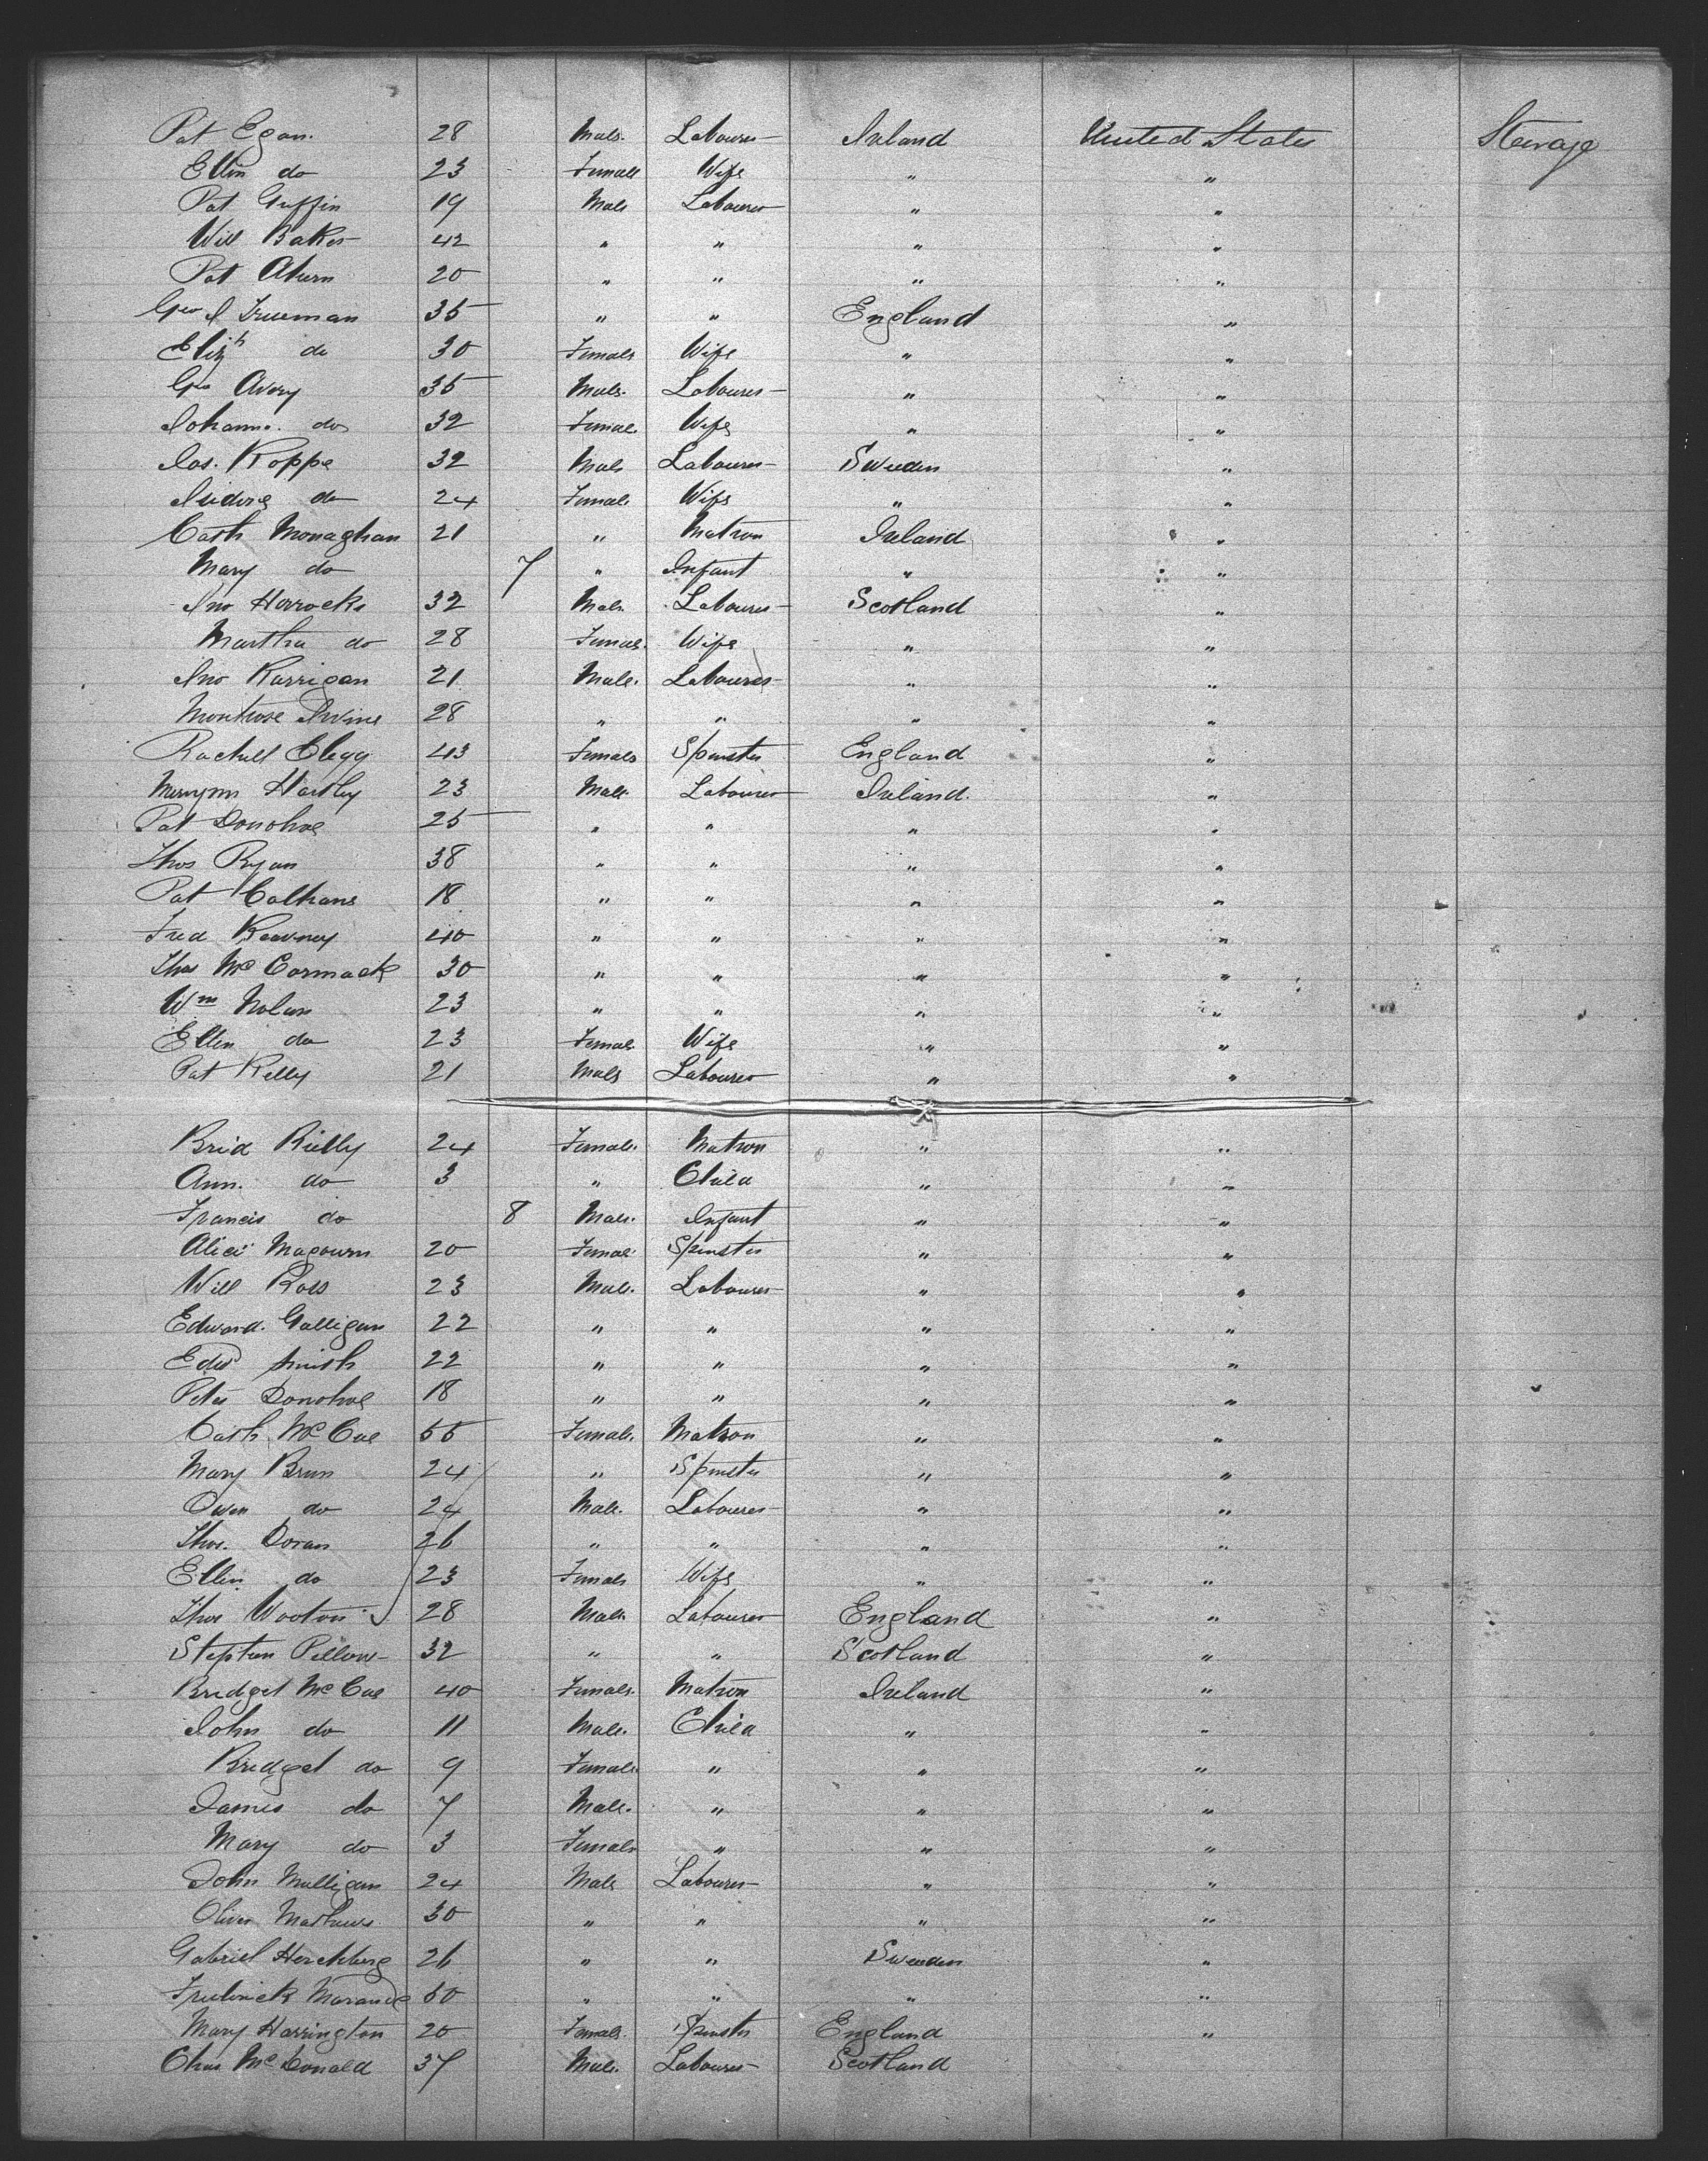 Pat Egan. 28 Male. Labourer Ireland United States Steerage
Ellen do 23 Female Wife " "
Pat Griffin 19 Male Labourer " "
Will Baker 42 " " " "
Pat Ahern 20 " " " "
Geo I Trueman 35 " " England "
Elizh do 30 Female Wife " "
Geo Avory 35 Male. Labourer " "
Johanna. do 32 Female. Wife " "
Jos. Koppe 32 Male Labourer Sweeden "
Isidore do 24 Female Wife " "
Cath Monaghan 21 " Matron Ireland "
Mary do 7 " Infant " "
Jno Horrocks 32 Male. Labourer Scotland "
Martha do 28 Female. Wife " "
Jno Karrigan 21 Male. Labourer " "
Montrose Irvine 28 " " " "
Rachell Clegg 43 Female Spinster England "
Hartley 23 Male. Labourer Ireland. "
Pat Donohoe 25 " " " "
Thos Ryan 38 " " " "
Pat Calhane 18 " " " "
Fred Kearney 40 " " " "
Thos McCormack 30 " " " "
Wm Nolan 23 " " " "
Ellen do 23 Female Wife " "
Pat Kelly 21 Male Labourer " "
Brid Rielly 24 Female. Matron " "
Ann. do 3 " Child " "
Francis do 8 Male. Infant " "
Alice Magourn 20 Female Spinster " "
Will Ross 23 Male. Labourer " "
Edward. Galligan 22 " " " "
Edwd Smith 22 " " " "
Peter Donohoe 18 " " " "
Cath McCue 55 Female. Matron " "
Mary Brun 24 " Spinster " "
Owen do 24 Male. Labourer " "
Thos. Doran 26 " " " "
Ellen do 23 Female Wife " "
Thos Wooton 28 Male. Labourer England "
Stephen Pellow 32 " " Scotland "
Bridget McCue 40 Female. Matron Ireland "
John do 11 Male. Child " "
Bridget do 9 Female. " " "
James do 7 Male. " " "
Mary do 3 Female " " "
John Mulligan 24 Male Labourer " "
Oliver Mathews. 30 " " " "
Gabriel Herckberg 26 " " Sweeden "
Frederick 50 " " " "
Mary Harrington 20 Female. Spinster England "
Chas McDonald 37 Male. Labourer Scotland